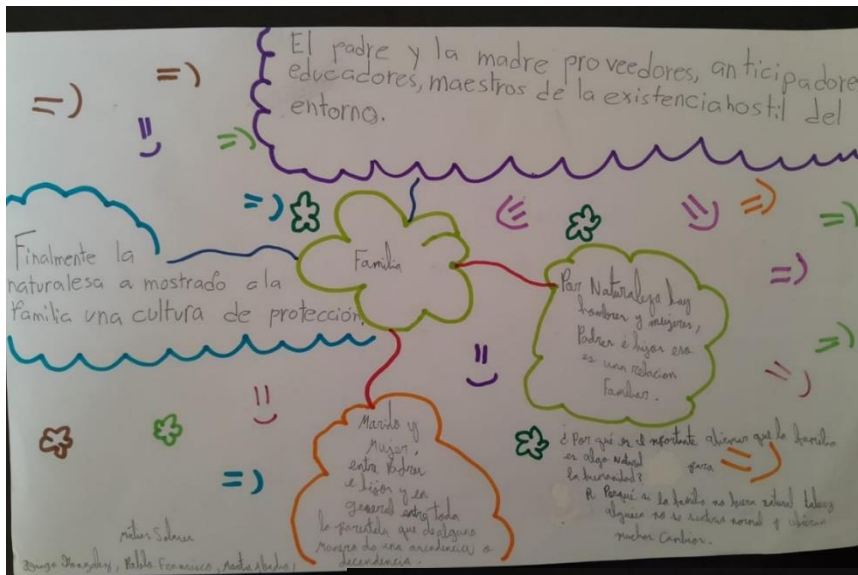 El padre y la madre proveedores, anticipadore
educadores, maestros de la existencia hostil del
entorno.
Finalmente la
naturalesa a mostrado a la
familia una cultura de protección.
Familia
Por Naturaleza hay
hombres y mujeres,
Padres é hijos eso
es una relacion
Familiar.
Marido y
Mujer,
entre Padres
e hijos y en
general entre toda
la parentela que de alguna
manera da una ascendencia o
decendencia.
¿Por qué es el importante que la familia
es algo Natural para
la humanidad?
R. Porqué si la familia no fuera natural
alguien no se sentiria normal y
muchos Cambios.
Pablo Francisco,